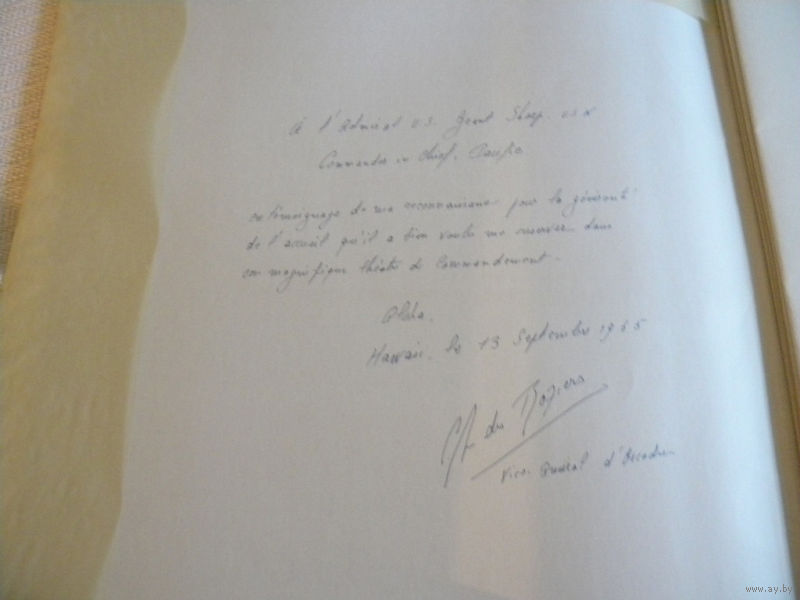 À l'Admiral U.S. Grant Sharp. USN
Commander in Chief, Pacific
en témoignage de ma reconnaissance pour la générosité
de l'accueil qu'il a bien voulu me réserver dans
son magnifique théâtre de Commandement.
Aloha.
Hawaii, le 13 Septembre 1965
des Roziers
Vice Amiral d'Escadre
www.ay.by